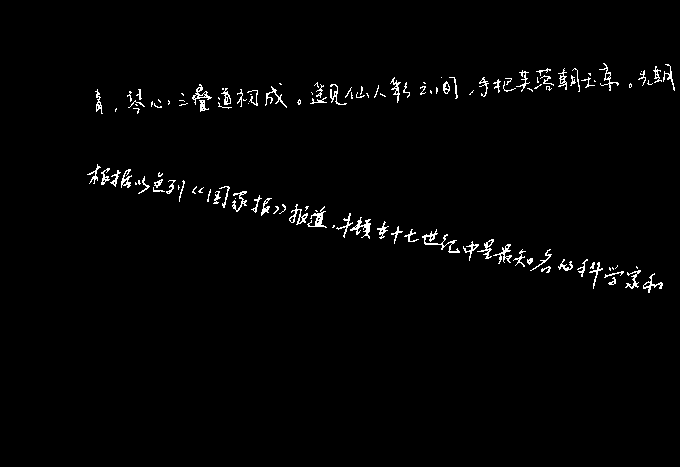 青，琴心三叠道初成。遥见仙人彩云间，手把芙蓉朝玉京。先期
根据以色列《国家报》报道，牛顿在十七世纪中是最知名的科学家和